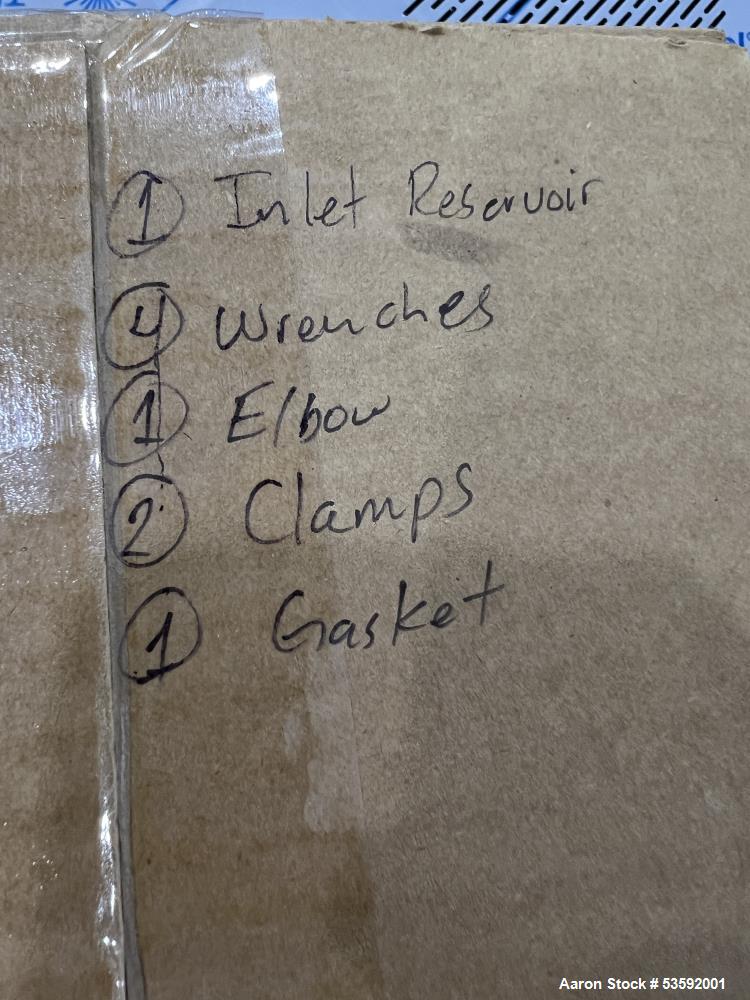 1 Inlet Reservoir
4 Wrenches
1 Elbow
2 Clamps
1 Gasket
Aaron Stock # 53592001